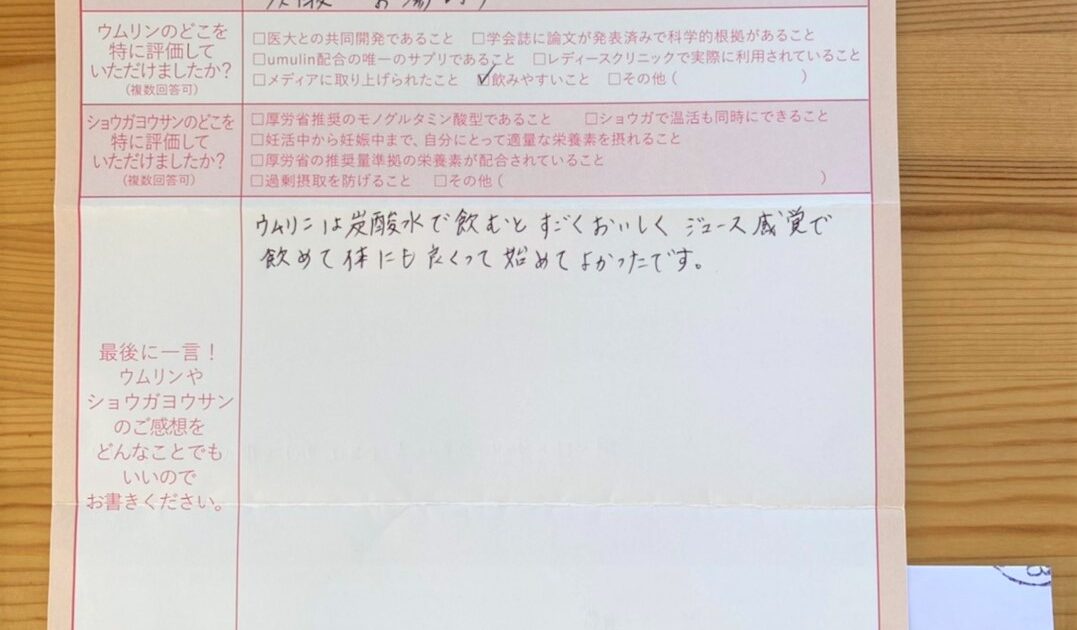 ウムリンのどこを
特に評価して
いただけましたか？
（複数回答可）
□医大との共同開発であること □学会誌に論文が発表済みで科学的根拠があること
□umulin配合の唯一のサプリであること □レディースクリニックで実際に利用されていること
□メディアに取り上げられたこと ☑飲みやすいこと □その他（ ）
ショウガヨウサンのどこを
特に評価して
いただけましたか？
（複数回答可）
□厚労省推奨のモノグルタミン酸型であること □ショウガで温活も同時にできること
□妊活中から妊娠中まで、自分にとって適量な栄養素を摂れること
□厚労省の推奨量準拠の栄養素が配合されていること
□過剰摂取を防げること □その他（ ）
最後に一言！
ウムリンや
ショウガヨウサン
のご感想を
どんなことでも
いいので
お書きください。
ウムリンは炭酸水で飲むとすごくおいしく ジュース感覚で
飲めて体にも良くって始めてよかったです。